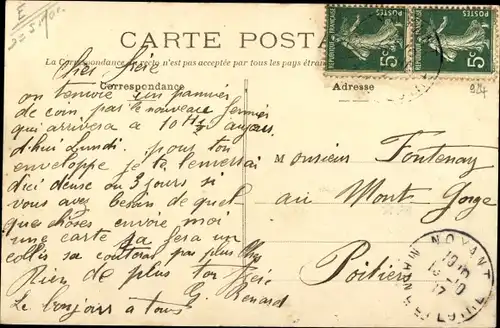 CARTE POSTA
La Correspondance au recto n'est pas acceptée par tous les pays étran
Correspondance
Adresse
Cher frère
on t'envoie un pannier
de coin par le nouveau fermier
qui arrivera a 10 H ½ aujour
d'hui Lundi. pour ton
enveloppe je te
d'ici deuse ou 3 jours si
vous avez besoin de quel
que choses envoie moi
une carte sa fera un
colis sa coutera pas plus cher
Rien de plus ton frère
G. Benard
Le bonjour a tous
Monsieur Fontenay
au Mont Gorge
Poitiers
POSTES
5c
POSTES
5c
924
NOYANT